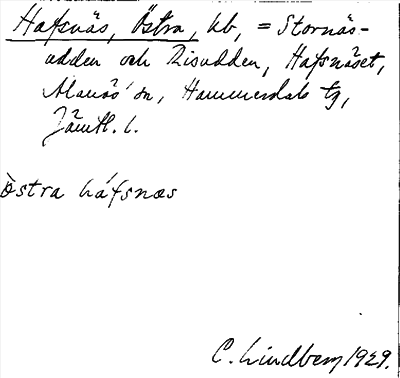 Hafsnäs, Östra, kb, = Stornäs-
udden och Risudden, Hafsnäset,
Alanäs sn, Hammerdals tg,
Jämtl. l.
òstra háfsnæs
C. Lindberg 1929.